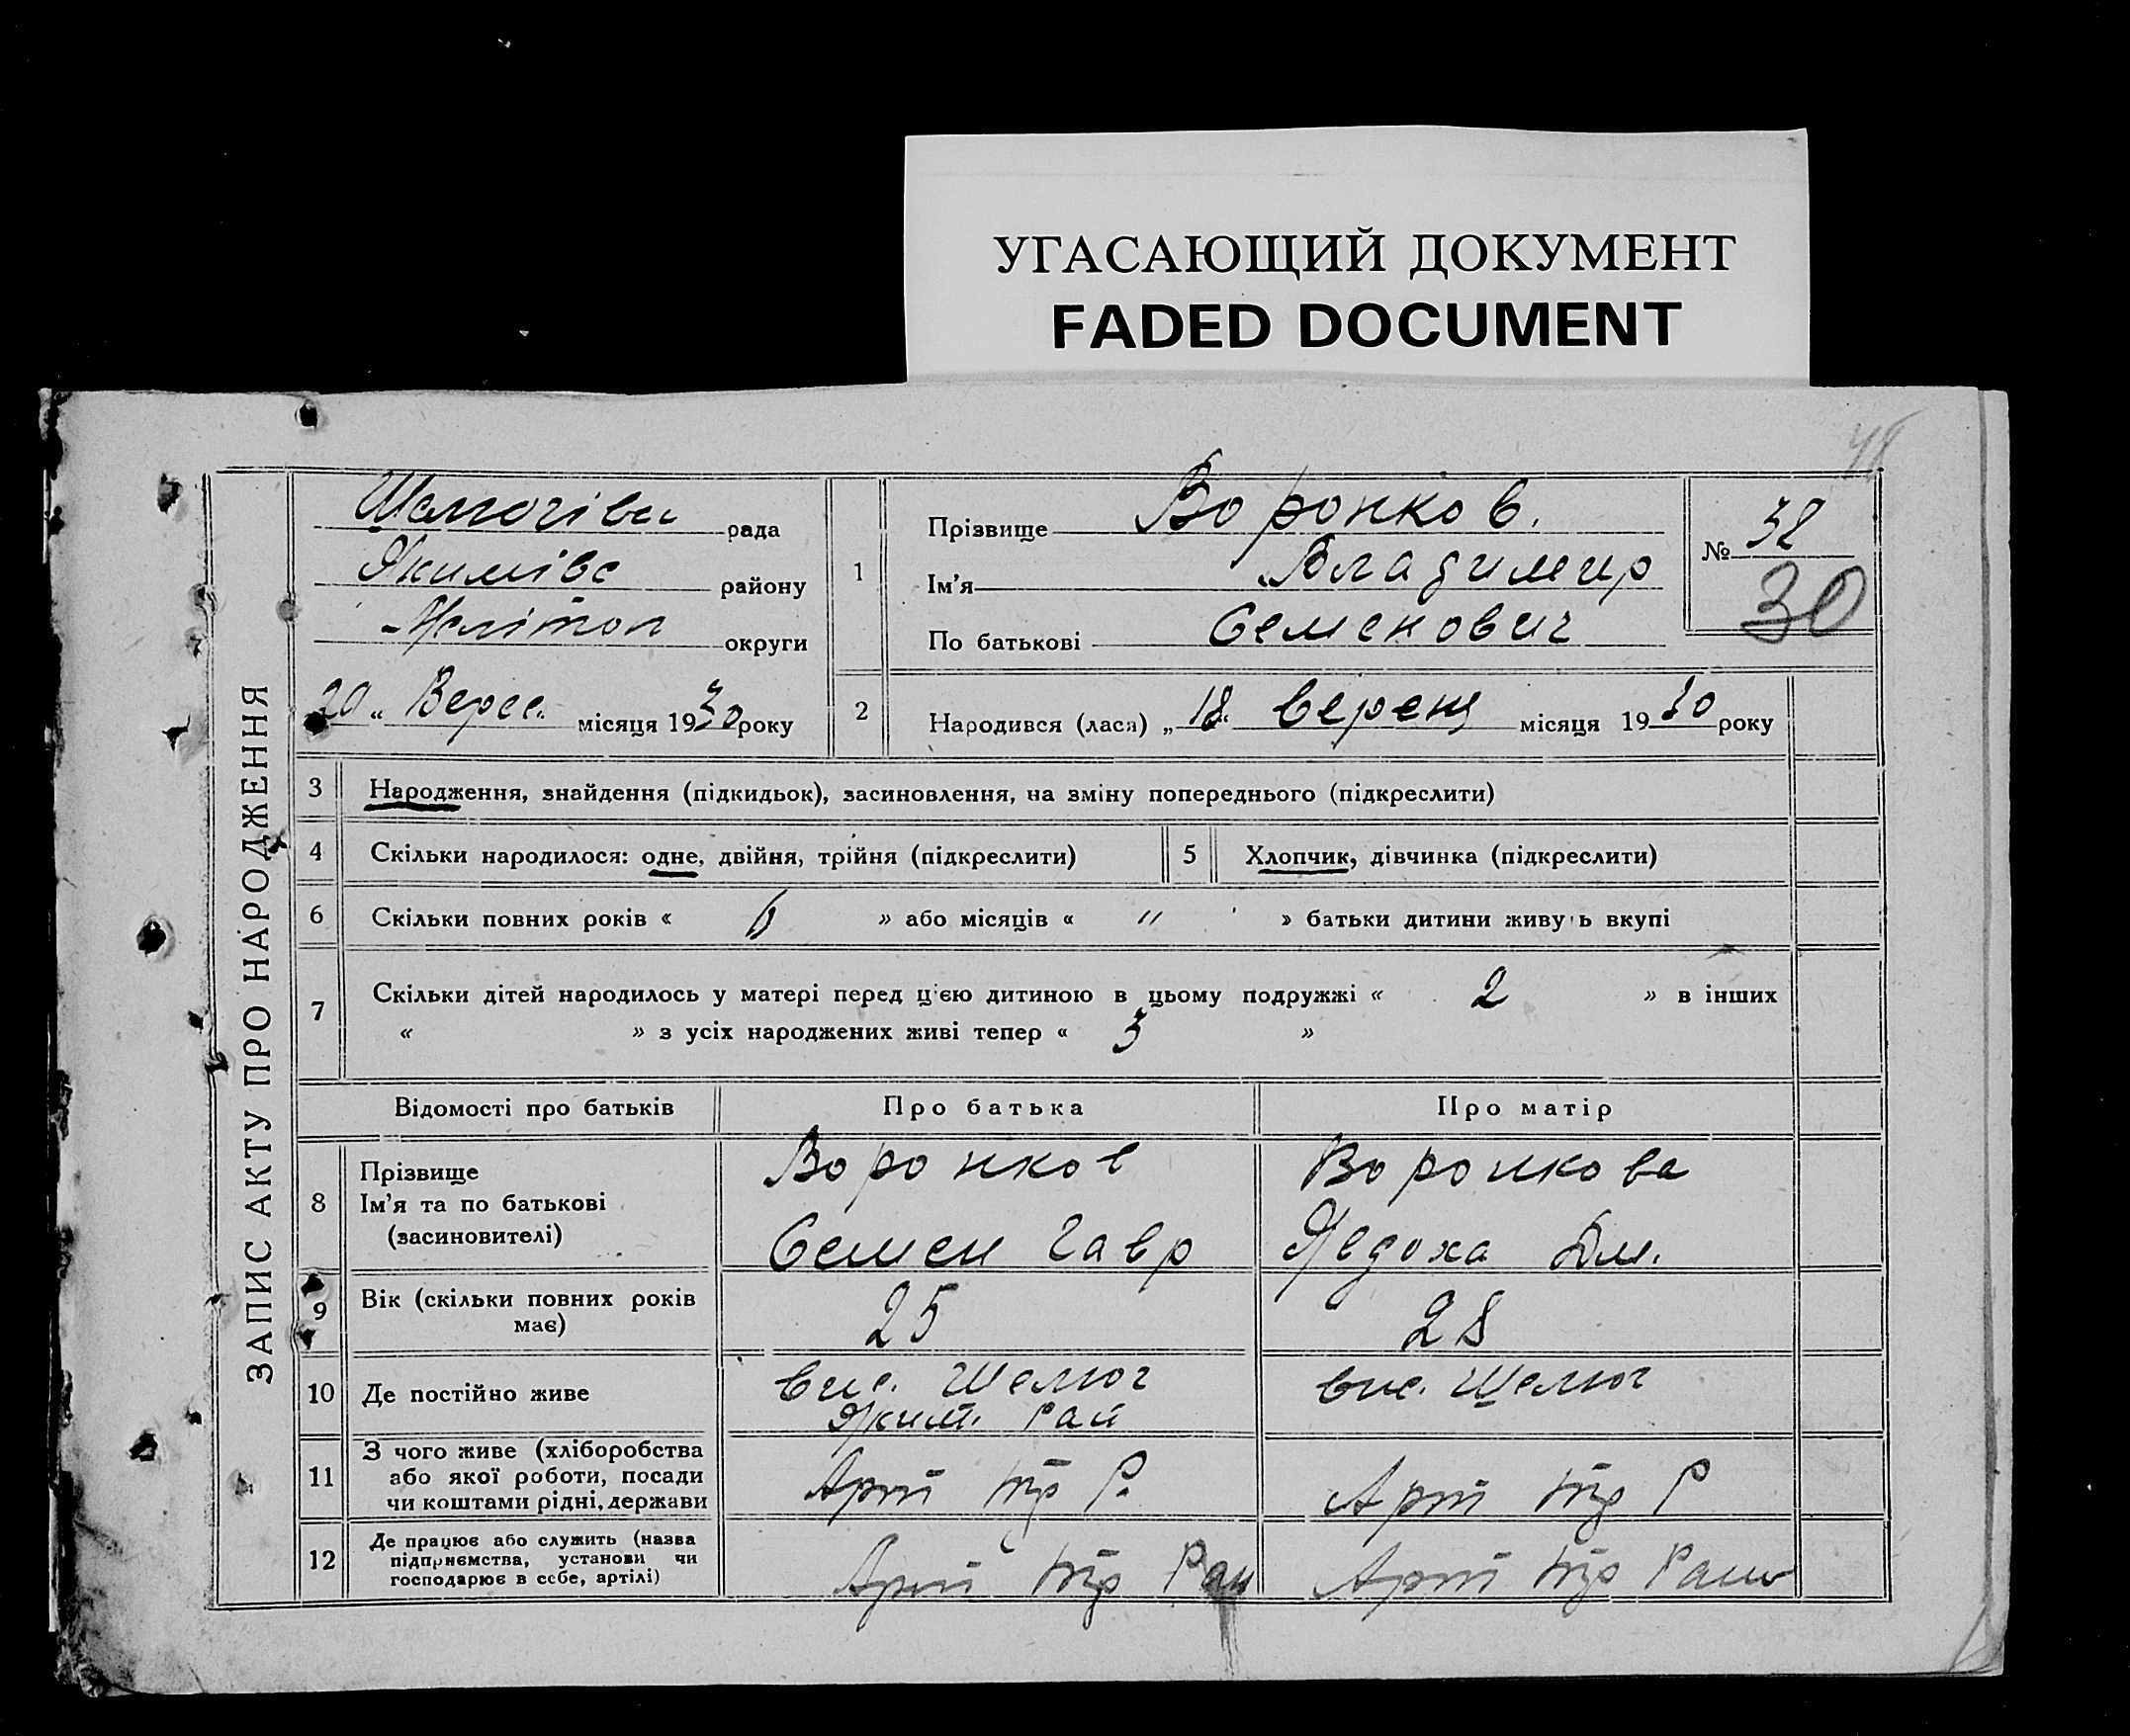 УГАСАЮЩИЙ ДОКУМЕНТ
FADED DOCUMENT
48
ЗАПИС АКТУ ПРО НАРОДЖЕННЯ
рада
Якимівс району
Мелітоп округи
20 „ Верес. місяця 1930 року
1
Прізвище Воронков.
Ім'я Владимир
По батькові Семенович
№ 32
30
2
Народився (лася) „18“ вересня місяця 1930 року
3 Народження, знайдення (підкидьок), засиновлення, на зміну попереднього (підкреслити)
4 Скільки народилося: одне, двійня, трійня (підкреслити)
5 Хлопчик, дівчинка (підкреслити)
6 Скільки повних років « 6 » або місяців « " » батьки дитини живуть вкупі
7 Скільки дітей народилось у матері перед цією дитиною в цьому подружжі « 2 » в інших
« » з усіх народжених живі тепер « 3 »
Відомості про батьків Про батька Про матір
8 Прізвище
Ім'я та по батькові
(засиновителі)
Воронков
Семен Гавр
Воронкова
Ядоха Дм.
9 Вік (скільки повних років
має)
25
28
10 Де постійно живе
вис. Шелюг
Яким. Рай
вис. Шелюг
11 З чого живе (хліборобства
або якої роботи, посади
чи коштами рідні, держави
Арт Р.
Арт Р
12 Де працює або служить (назва
підприємства, установи чи
господарює в себе, артілі)
Арт Ран
Арт